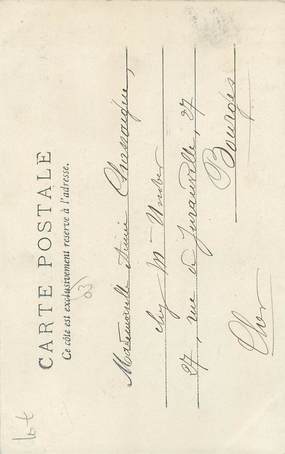 CARTE POSTALE
Ce côté est exclusivement réservé à l'adresse.
Mademoiselle Chassaigne,
chez Mr
27, rue de Jurauville, 27
Bourges
Cher
63
lot